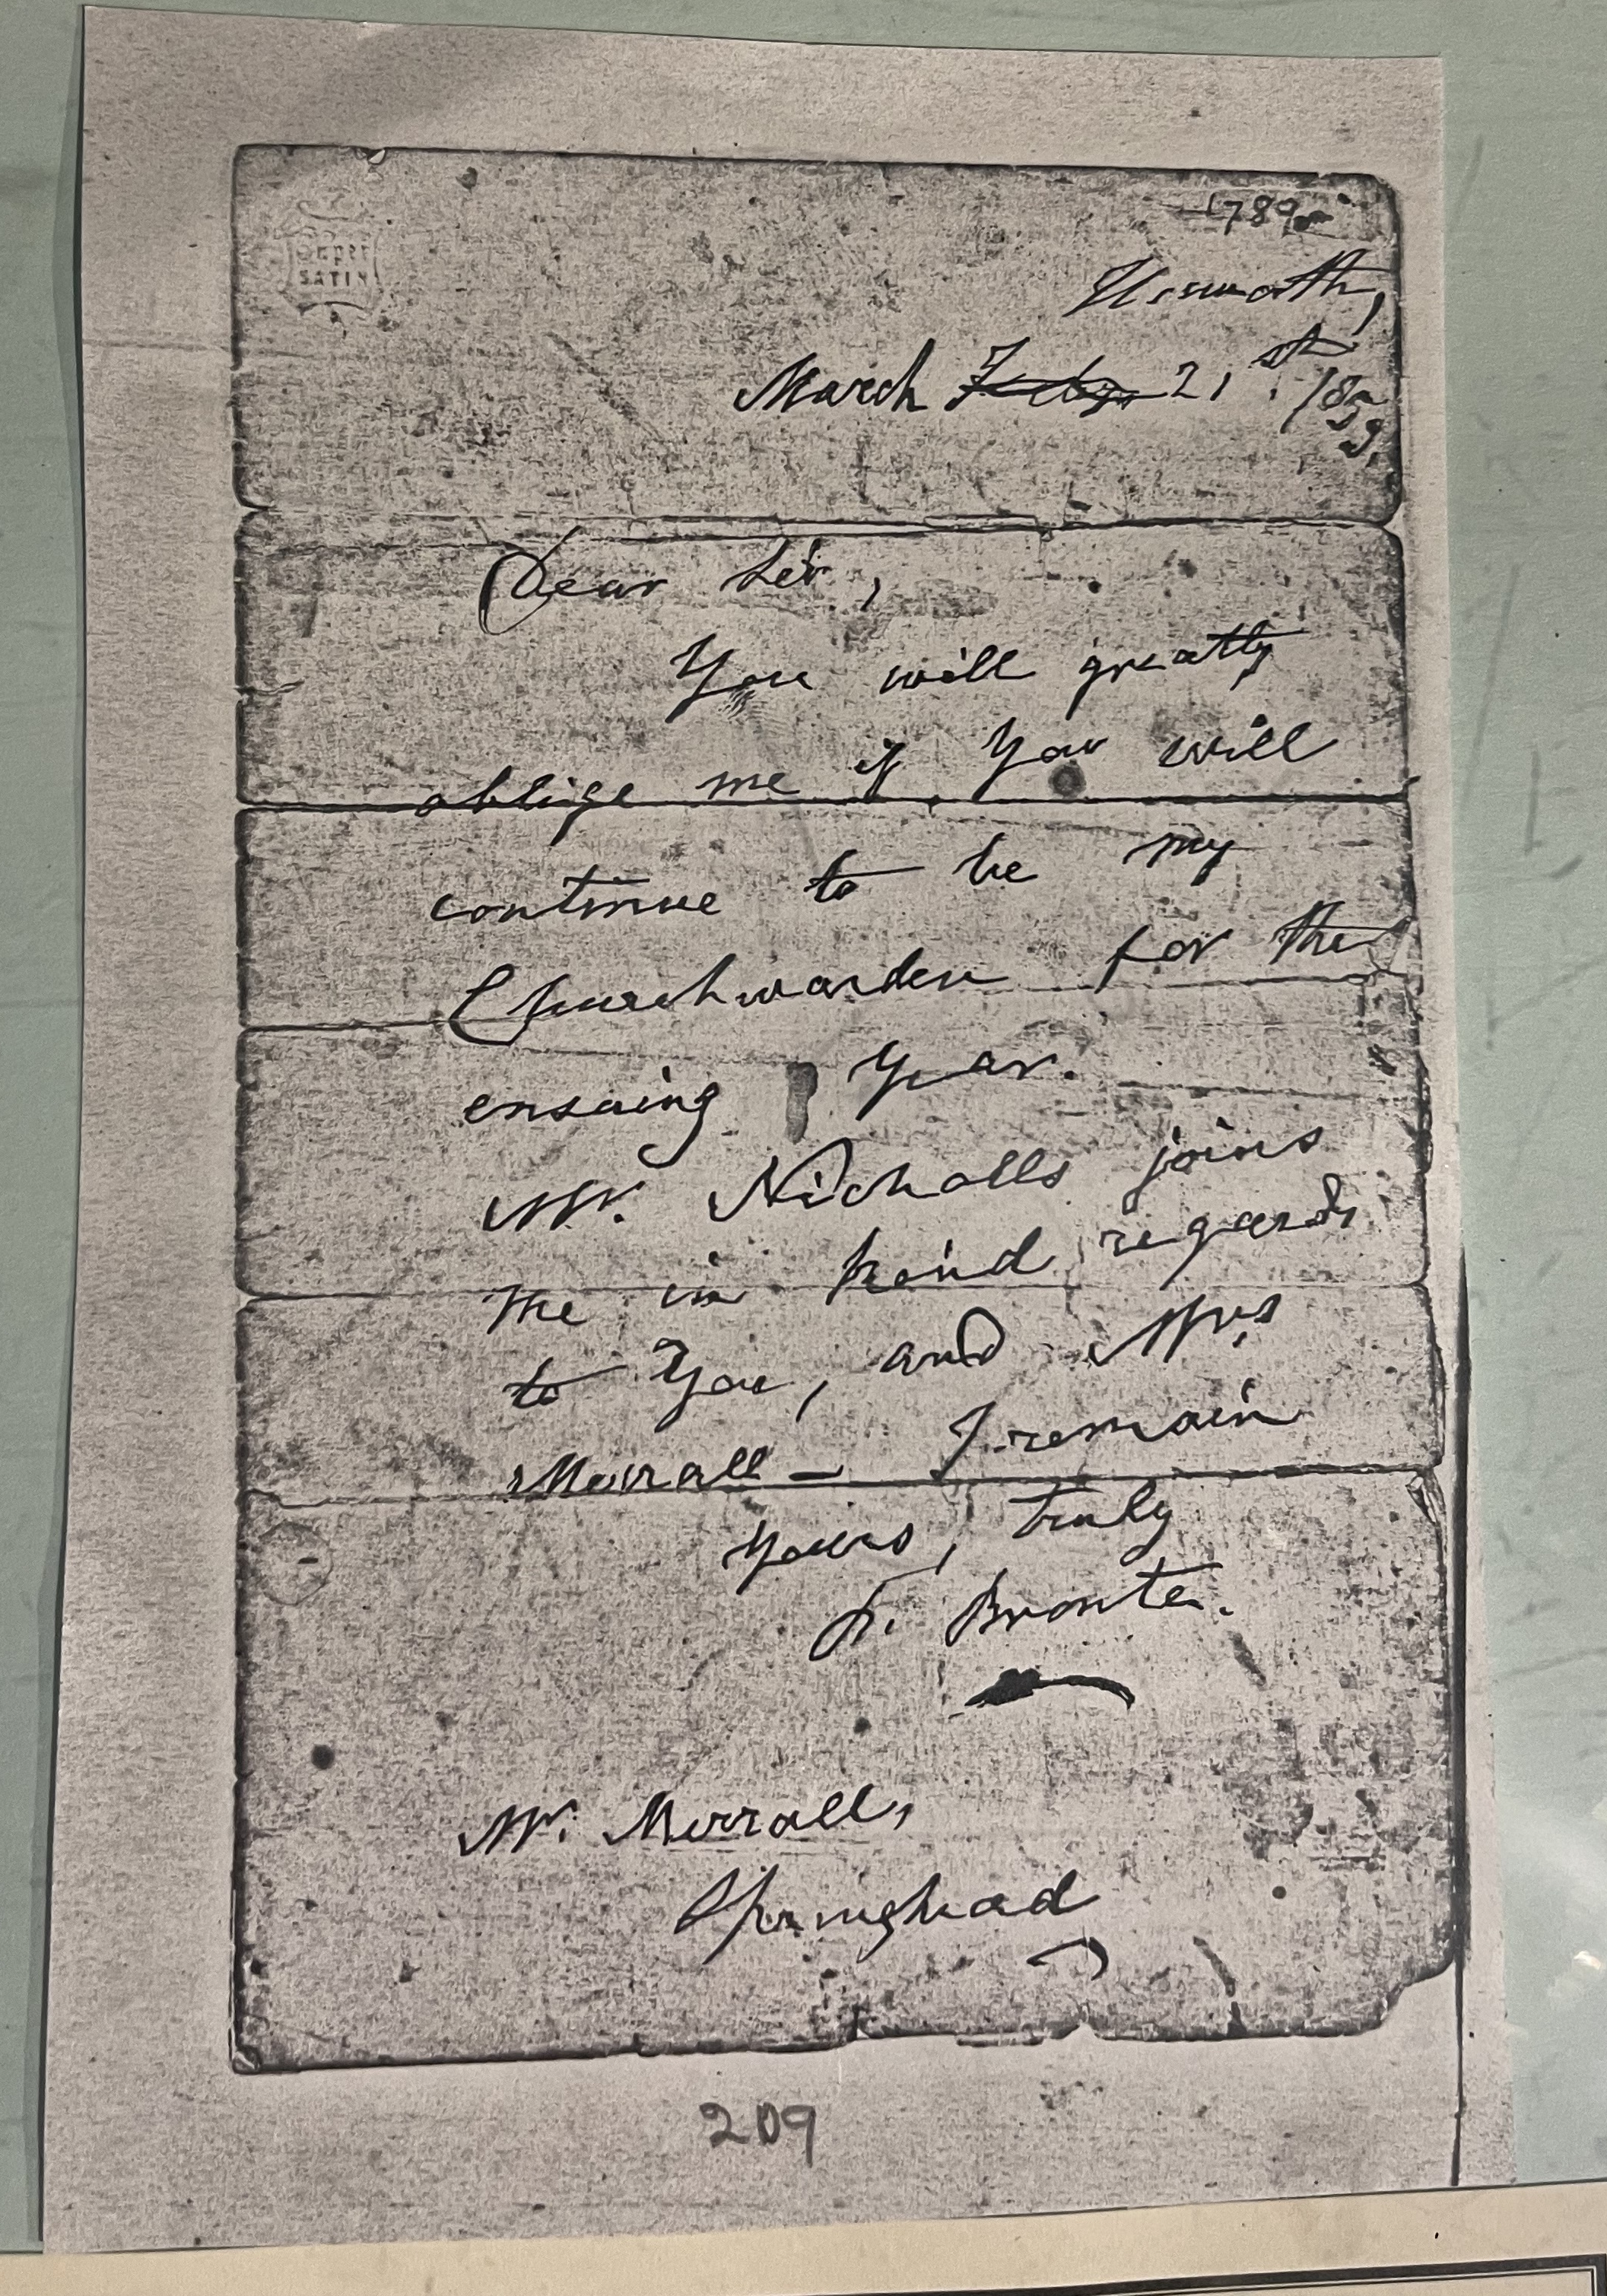 Super
SATIN
1789
Haworth,
March Feby 21st. 1859.
Dear Sir,
You will greatly
oblige me if You will
continue to be my
Churchwarden for the
ensuing Year.
Mr. Nicholls joins
me in kind regards
to You, and Mrs
Merrall — I remain
Yours, truly
P. Bronte.
Mr. Merrall,
Springhead
209